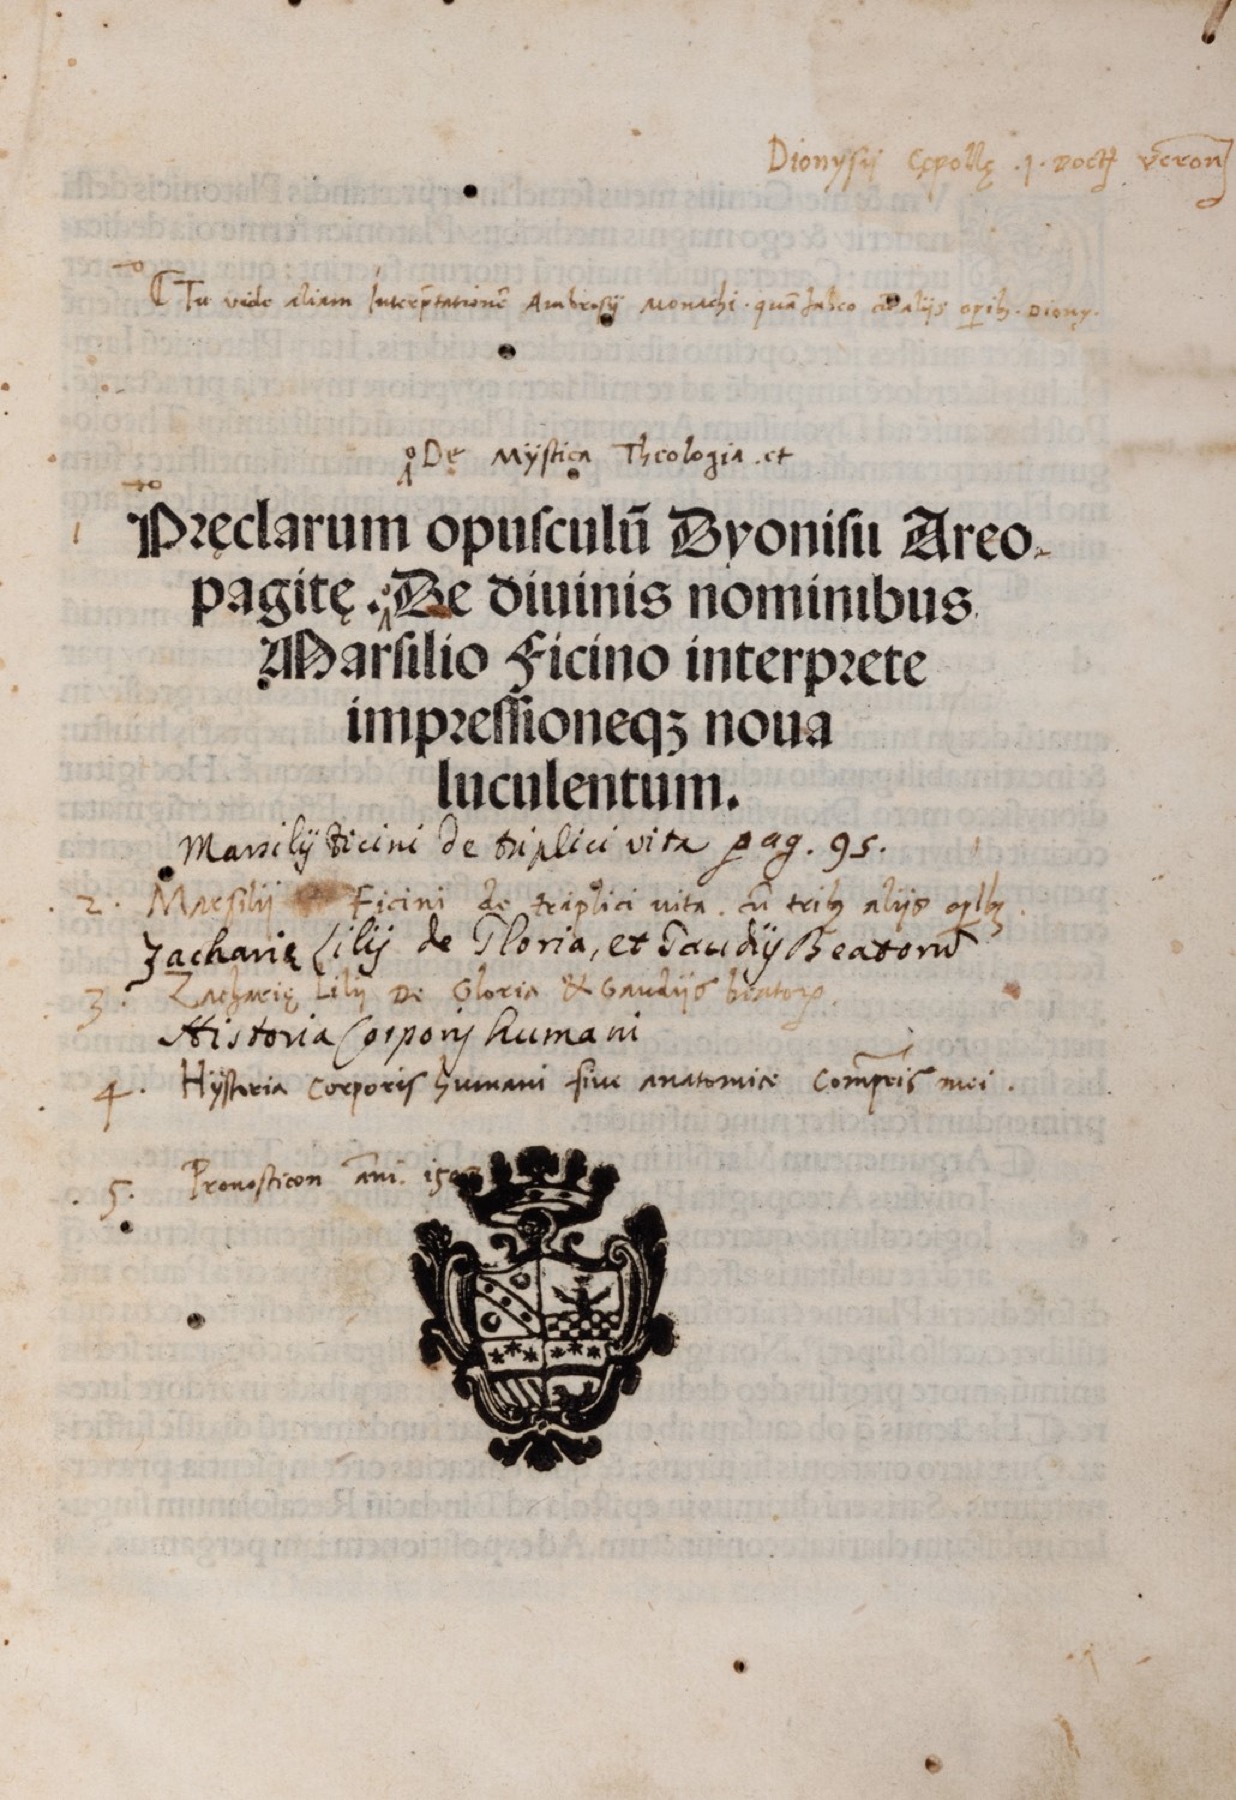 Dionysij Cępollę .J. Doct. Veron
Tu vide aliam Interp̄tationē Ambrosij Monachi . quā habeo cū alijs opib. Diony.
De Mystica Theologia . et
1 Pręclarum opusculū Dyonisii Areo-
pagitę . De diuinis nominibus
Marsilio Ficino interprete
impressioneqȝ noua
luculentum.
Marsilij Ficini de triplici vita pag. 95.
. 2 . Marsilij Ficini de triplici vita . cū trib alijs
Zacharię Lilij de Gloria, et Gaudij Beatorū
3 . Zacharię Lilij De Gloria & Gaudijs beator
Historia Corporis humani
4 . Hystoria Corporis humani siue anatomice mei .
. 5 . Pronosticon āni .